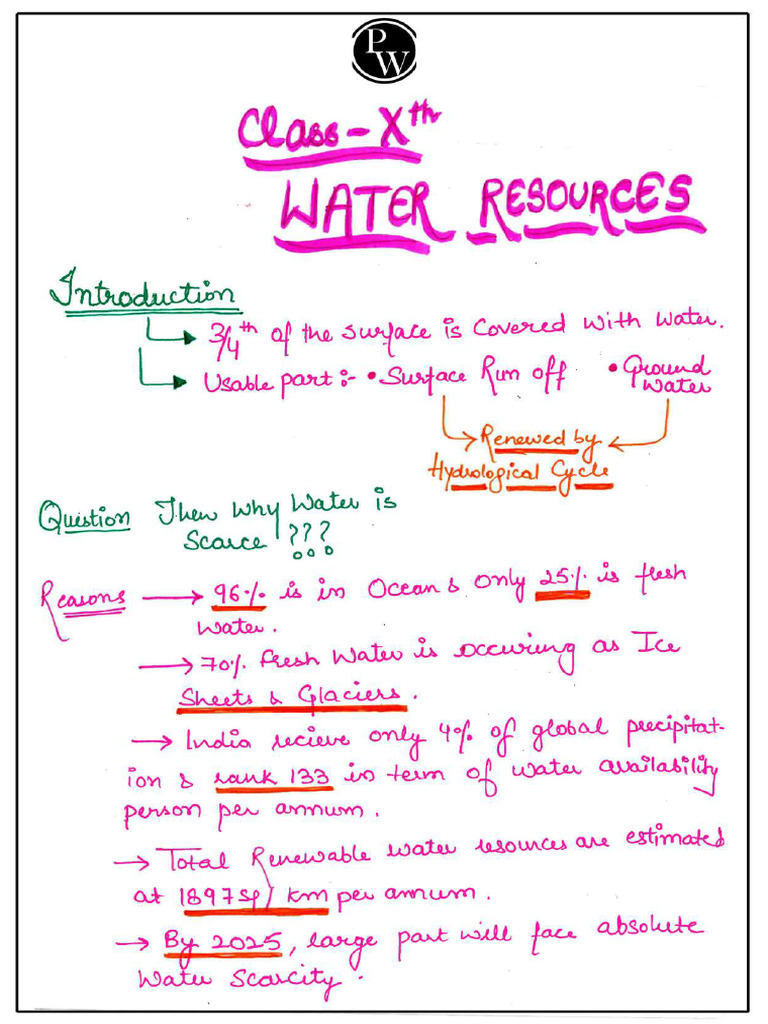 PW
Class - Xth
WATER RESOURCES
Introduction
3/4th of the surface is covered with water.
Usable part :- • Surface Run off • Ground Water
Renewed by
Hydrological Cycle
Question Then why Water is
Scarce ???
Reasons → 96% is in Ocean & only 25% is fresh
water.
→ 70% fresh water is occuring as Ice
Sheets & Glaciers.
→ India recieve only 4% of global precipitat-
ion & rank 133 in term of water availability
person per annum.
→ Total Renewable water resources are estimated
at 1897 sq/ km per annum.
→ By 2025, large part will face absolute
Water Scarcity.